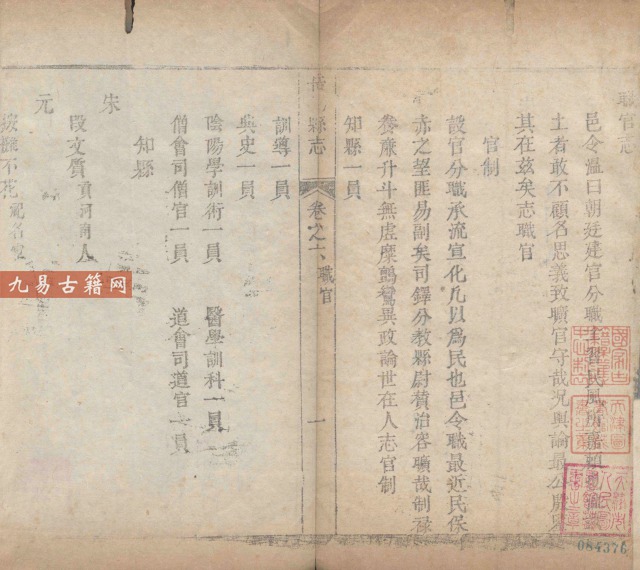 職官志
邑令溫曰朝廷建官分職
土者敢不顧名思義致曠官守哉況輿論最公
其在茲矣志職官
官制
設官分職承流宣化凡以為民也邑令職最近民保
赤之望匪易副矣司鐸分教縣尉贊治容曠哉制祿
養廉升斗無虛糜鸞異政論世在人志官制
知縣一員
縣志
卷之
職官
一
訓導一員
典史一員
陰陽學訓術一員
醫學訓科一員
僧會司僧官一員
道會司道官一員
知縣
宋
段文質
貢河南人
元
按攤不花
九易古籍网
084376